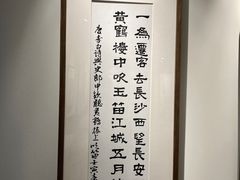 一為遷客去長沙西望長安
黃鶴樓中吹玉笛江城五月
唐李白詩與史郎中欽聽黃鶴樓上吹笛壬寅